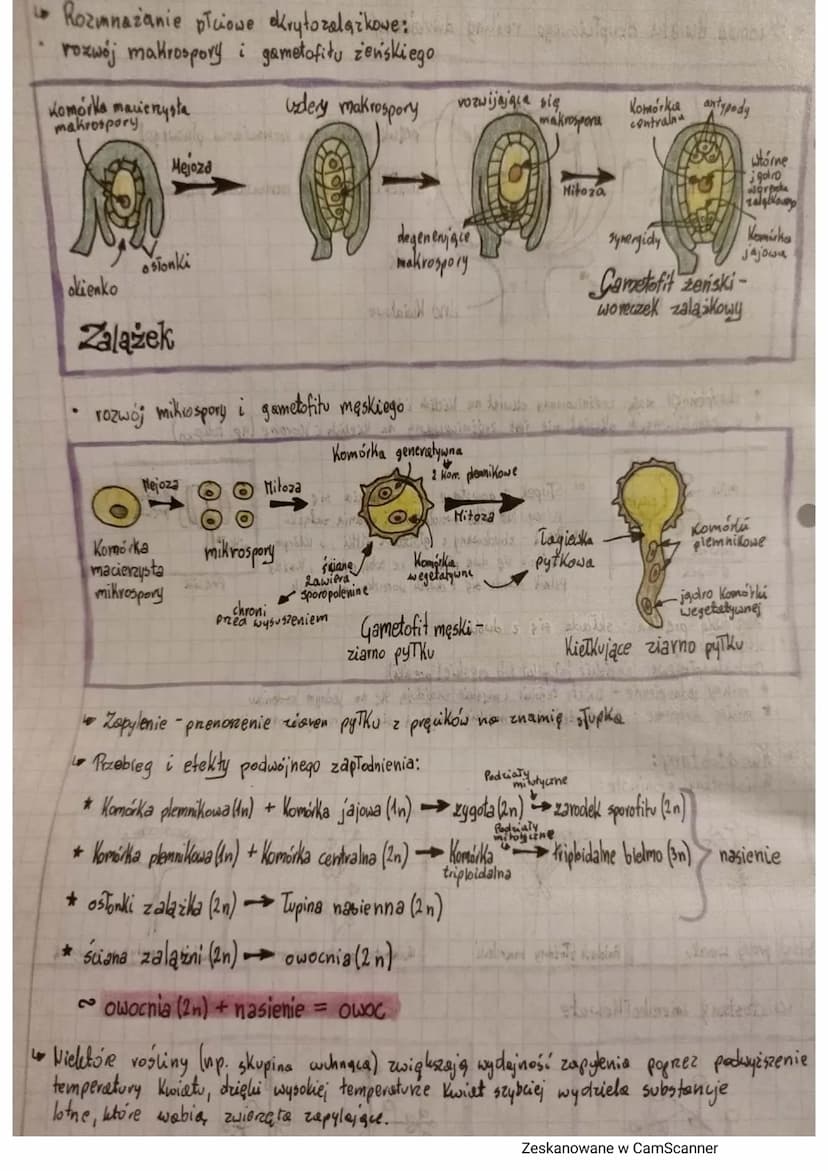 ↳ Rozmnażanie płciowe okrytozalążkowe:
• rozwój makrospory i gametofitu żeńskiego
Komórka macierzysta
makrospory
Mejoza
cztery makrospory
rozwijająca się
makrospora
Mitoza
Komórka
centralna
antypody
wtórne
jądro
woreczka
zalążkowego
Komórka
jajowa
synergidy
degenerujące
makrospory
osłonki
okienko
Gametofit żeński -
woreczek zalążkowy
Zalążek
• rozwój mikrospory i gametofitu męskiego
Komórka generatywna
2 kom. plemnikowe
Mejoza
Mitoza
Mitoza
Komórka
macierzysta
mikrospory
mikrospory
ściana
zawiera
sporopolenine
chroni
przed wysuszeniem
Komórka
wegetatywna
Łagiewka
pyłkowa
Komórki
plemnikowe
jądro Komórki
wegetatywnej
Gametofit męski -
ziarno pyłku
Kiełkujące ziarno pyłku
↳ Zapylenie - przenoszenie ziaren pyłku z pręcików na znamię słupka
↳ Przebieg i efekty podwójnego zapłodnienia:
* Komórka plemnikowa (1n) + Komórka jajowa (1n) → zygota (2n) → zarodek sporofitu (2n)
Podziały
mitotyczne
* Komórka plemnikowa (1n) + Komórka centralna (2n) → Komórka triploidalna → triploidalne bielmo (3n)
Podziały
mitotyczne
nasienie
* osłonki zalążka (2n) → Łupina nasienna (2n)
* ściana zalążni (2n) → owocnia (2n)
~ owocnia (2n) + nasienie = owoc
↳ Niektóre rośliny (np. skupina cuchnąca) zwiększają wydajność zapylenia poprzez podwyższenie
temperatury Kwiatu, dzięki wysokiej temperaturze Kwiat szybciej wydziela substancje
lotne, które wabią zwierzęta zapylające.
Zeskanowane w CamScanner